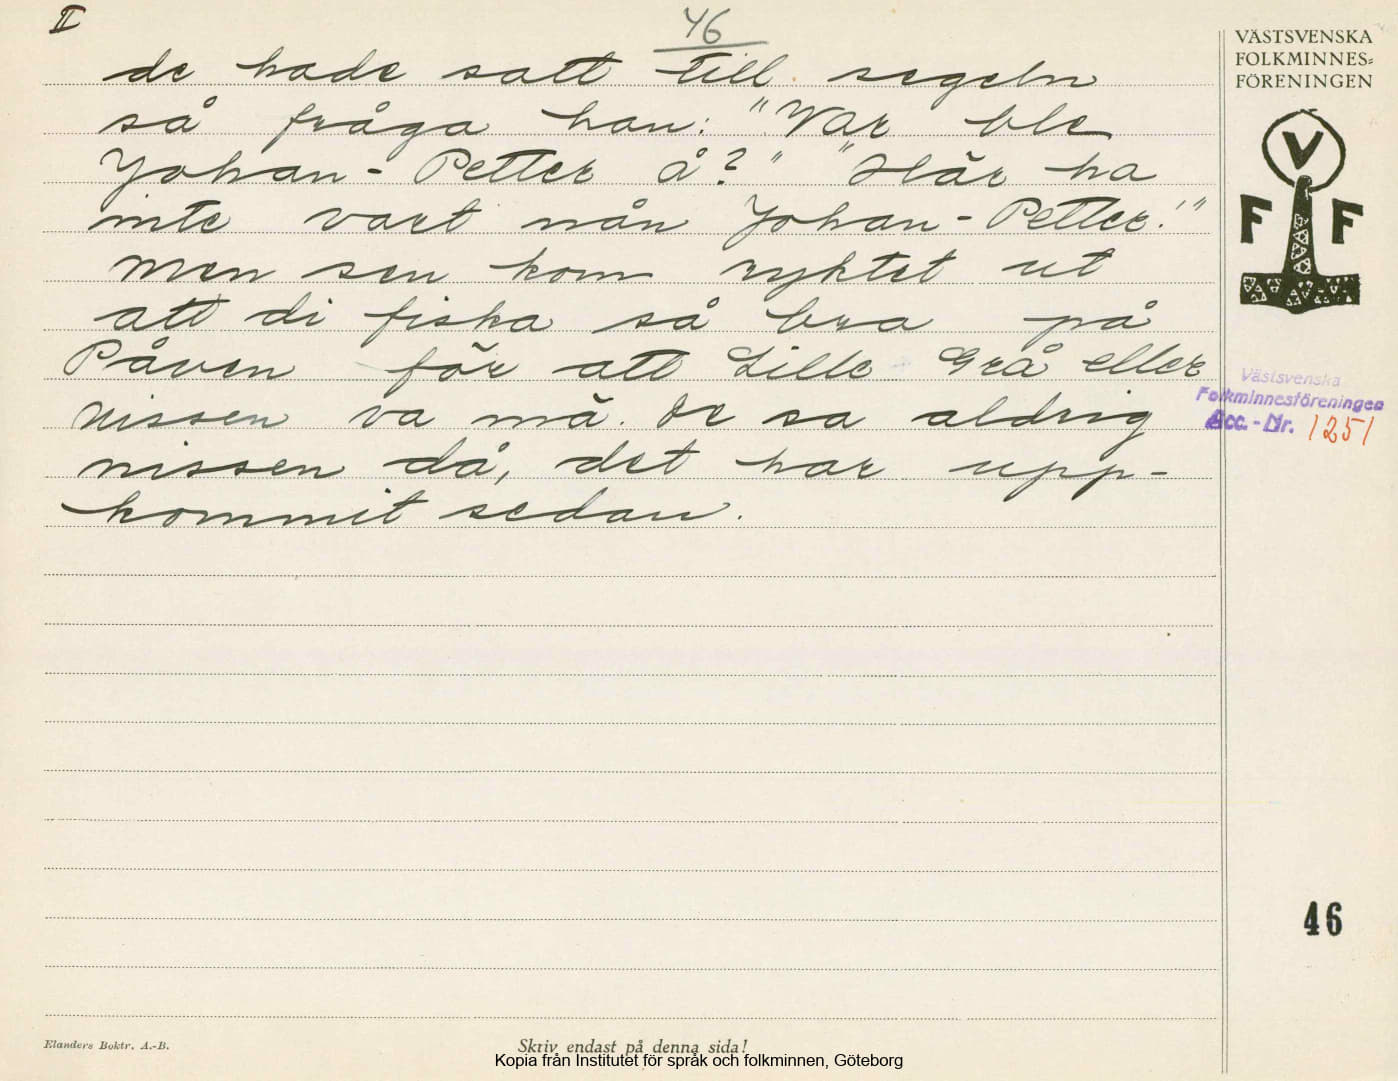 II
46
de hade satt till segeln
så fråga han: "Var ble
Johan-Petter å?" "Här ha
inte vart nån Johan-Petter!"
Men sen kom ryktet ut
att di fiska så bra på
Påven för att Lille Grå eller
nissen va må. De sa aldrig
nissen då, det har upp-
kommit sedan.
VÄSTSVENSKA
FOLKMINNES=
FÖRENINGEN
V
F F
Västsvenska
Folkminnesföreningen
Acc.-Nr. 1251
46
Elanders Boktr. A.-B.
Skriv endast på denna sida!
Kopia från Institutet för språk och folkminnen, Göteborg